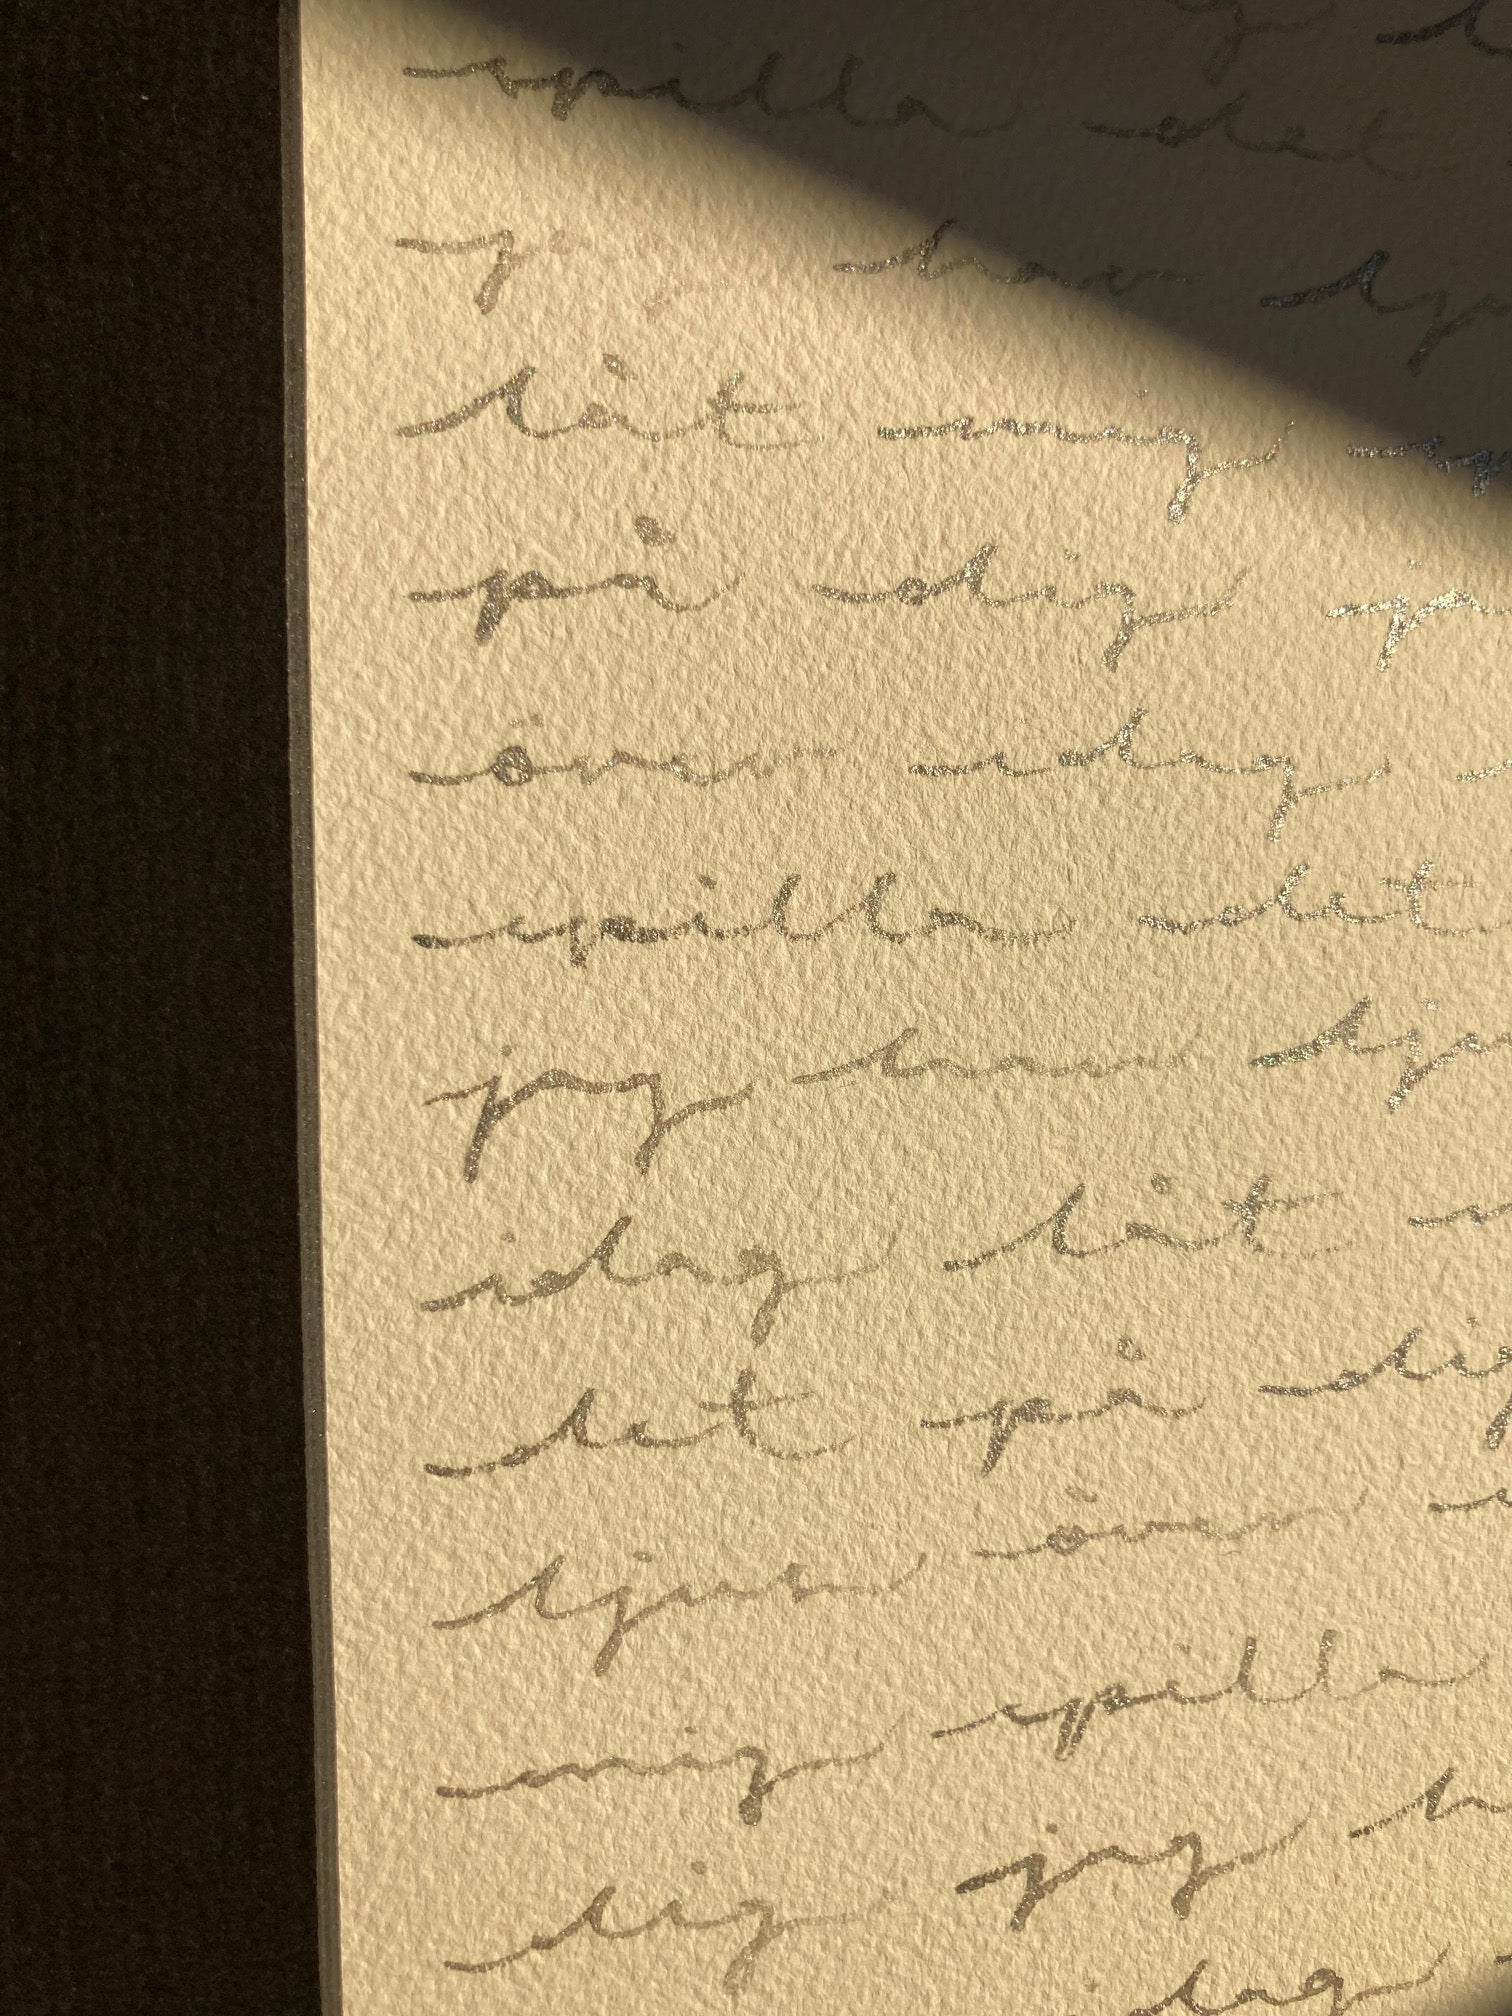 spilla det
har
låt mig
på dig
över idag
spilla det
jag har ljus
idag låt
det på dig
ljus över
mig spilla
dig jag
idag